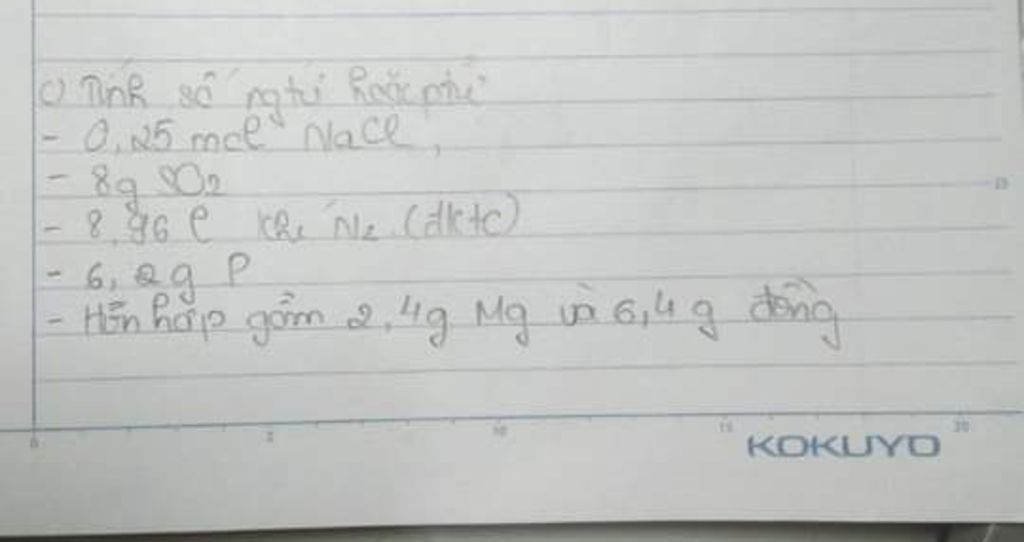 c) Tính số ngtử hoặc ptử
- 0,25 mol NaCl,
- 8g SO2
- 8,96 l khí N2 (đktc)
- 6,2g P
- Hỗn hợp gồm 2,4g Mg và 6,4g đồng
0 5 10 15 20
KOKUYO